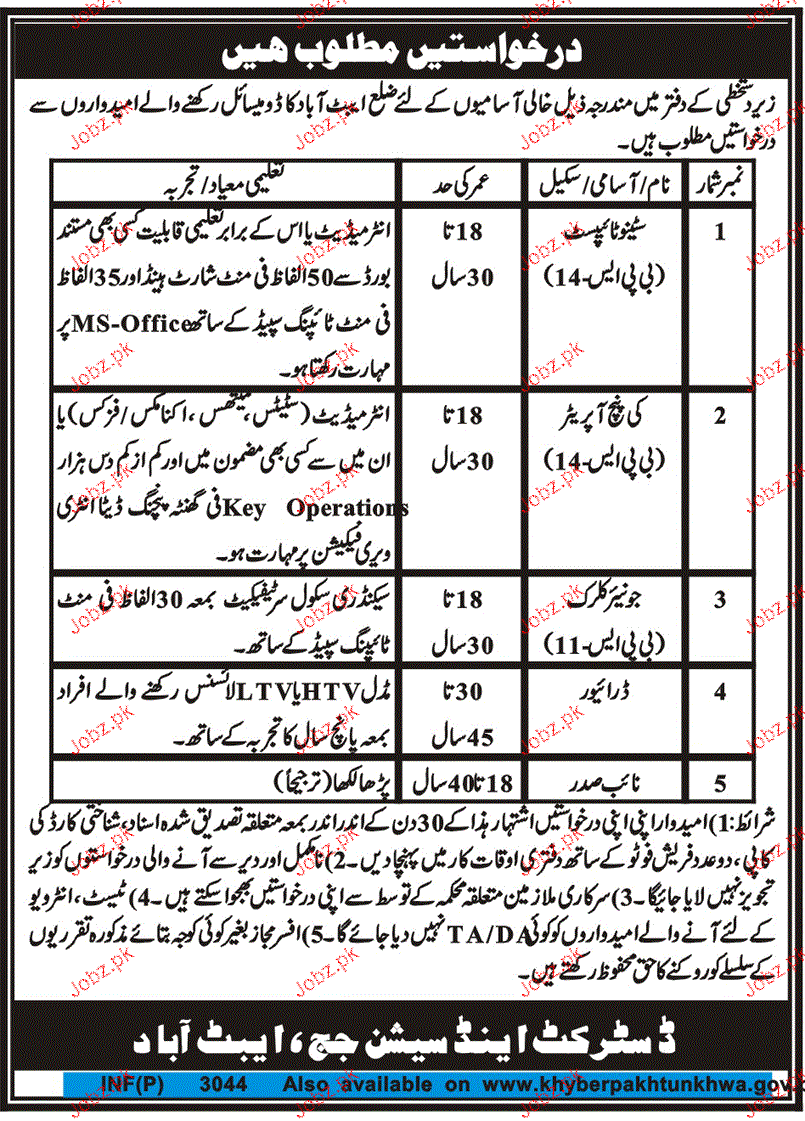 درخواستیں مطلوب ھیں
زیر دستخطی کے دفتر میں مندرجہ ذیل خالی آسامیوں کے لئے ضلع ایبٹ آباد کا ڈومیسائل رکھنے والے امیدواروں سے
درخواستیں مطلوب ہیں۔
نمبر شمار نام/آسامی/سکیل عمر کی حد تعلیمی معیار/تجربہ
1 سٹینو ٹائپسٹ 18 تا انٹرمیڈیٹ یا اس کے برابر تعلیمی قابلیت کسی بھی مستند
(بی پی ایس-14) 30 سال بورڈ سے 50 الفاظ فی منٹ شارٹ ہینڈ اور 35 الفاظ
فی منٹ ٹائپنگ سپیڈ کے ساتھ MS-Office پر
مہارت رکھتا ہو۔
2 کی پنچ آپریٹر 18 تا انٹرمیڈیٹ (سٹیٹس، میتھس، اکنامکس/فزکس) یا
(بی پی ایس-14) 30 سال ان میں سے کسی بھی مضمون میں اور کم از کم دس ہزار
Key Operations فی گھنٹہ پنچنگ ڈیٹا انٹری
ویری فیکیشن پر مہارت ہو۔
3 جونیئر کلرک 18 تا سیکنڈری سکول سرٹیفیکیٹ بمعہ 30 الفاظ فی منٹ
(بی پی ایس-11) 30 سال ٹائپنگ سپیڈ کے ساتھ۔
4 ڈرائیور 30 تا مڈل HTV یا LTV لائسنس رکھنے والے افراد
45 سال بمعہ پانچ سال کا تجربہ کے ساتھ۔
5 نائب صدر 18 تا 40 سال پڑھا لکھا (ترجیحاً)
شرائط: 1) امیدوار اپنی اپنی درخواستیں اشتہار ہذا کے 30 دن کے اندر اندر بمعہ متعلقہ تصدیق شدہ اسناد، شناختی کارڈ کی
کاپی، دو عدد فریش فوٹو کے ساتھ دفتری اوقات کار میں پہنچا دیں۔ 2) نامکمل اور دیر سے آنے والی درخواستوں کو زیر
تجویز نہیں لایا جائیگا۔ 3) سرکاری ملازمین متعلقہ محکمہ کے توسط سے اپنی درخواستیں بھجوا سکتے ہیں۔ 4) ٹیسٹ، انٹرویو
کے لئے آنے والے امیدواروں کو کوئی TA/DA نہیں دیا جائے گا۔ 5) افسر مجاز بغیر کوئی وجہ بتائے مذکورہ تقرریوں
کے سلسلے کو روکنے کا حق محفوظ رکھتے ہیں۔
ڈسٹرکٹ اینڈ سیشن جج، ایبٹ آباد
INF(P) 3044 Also available on www.khyberpakhtunkhwa.gov.
Jobz.pk